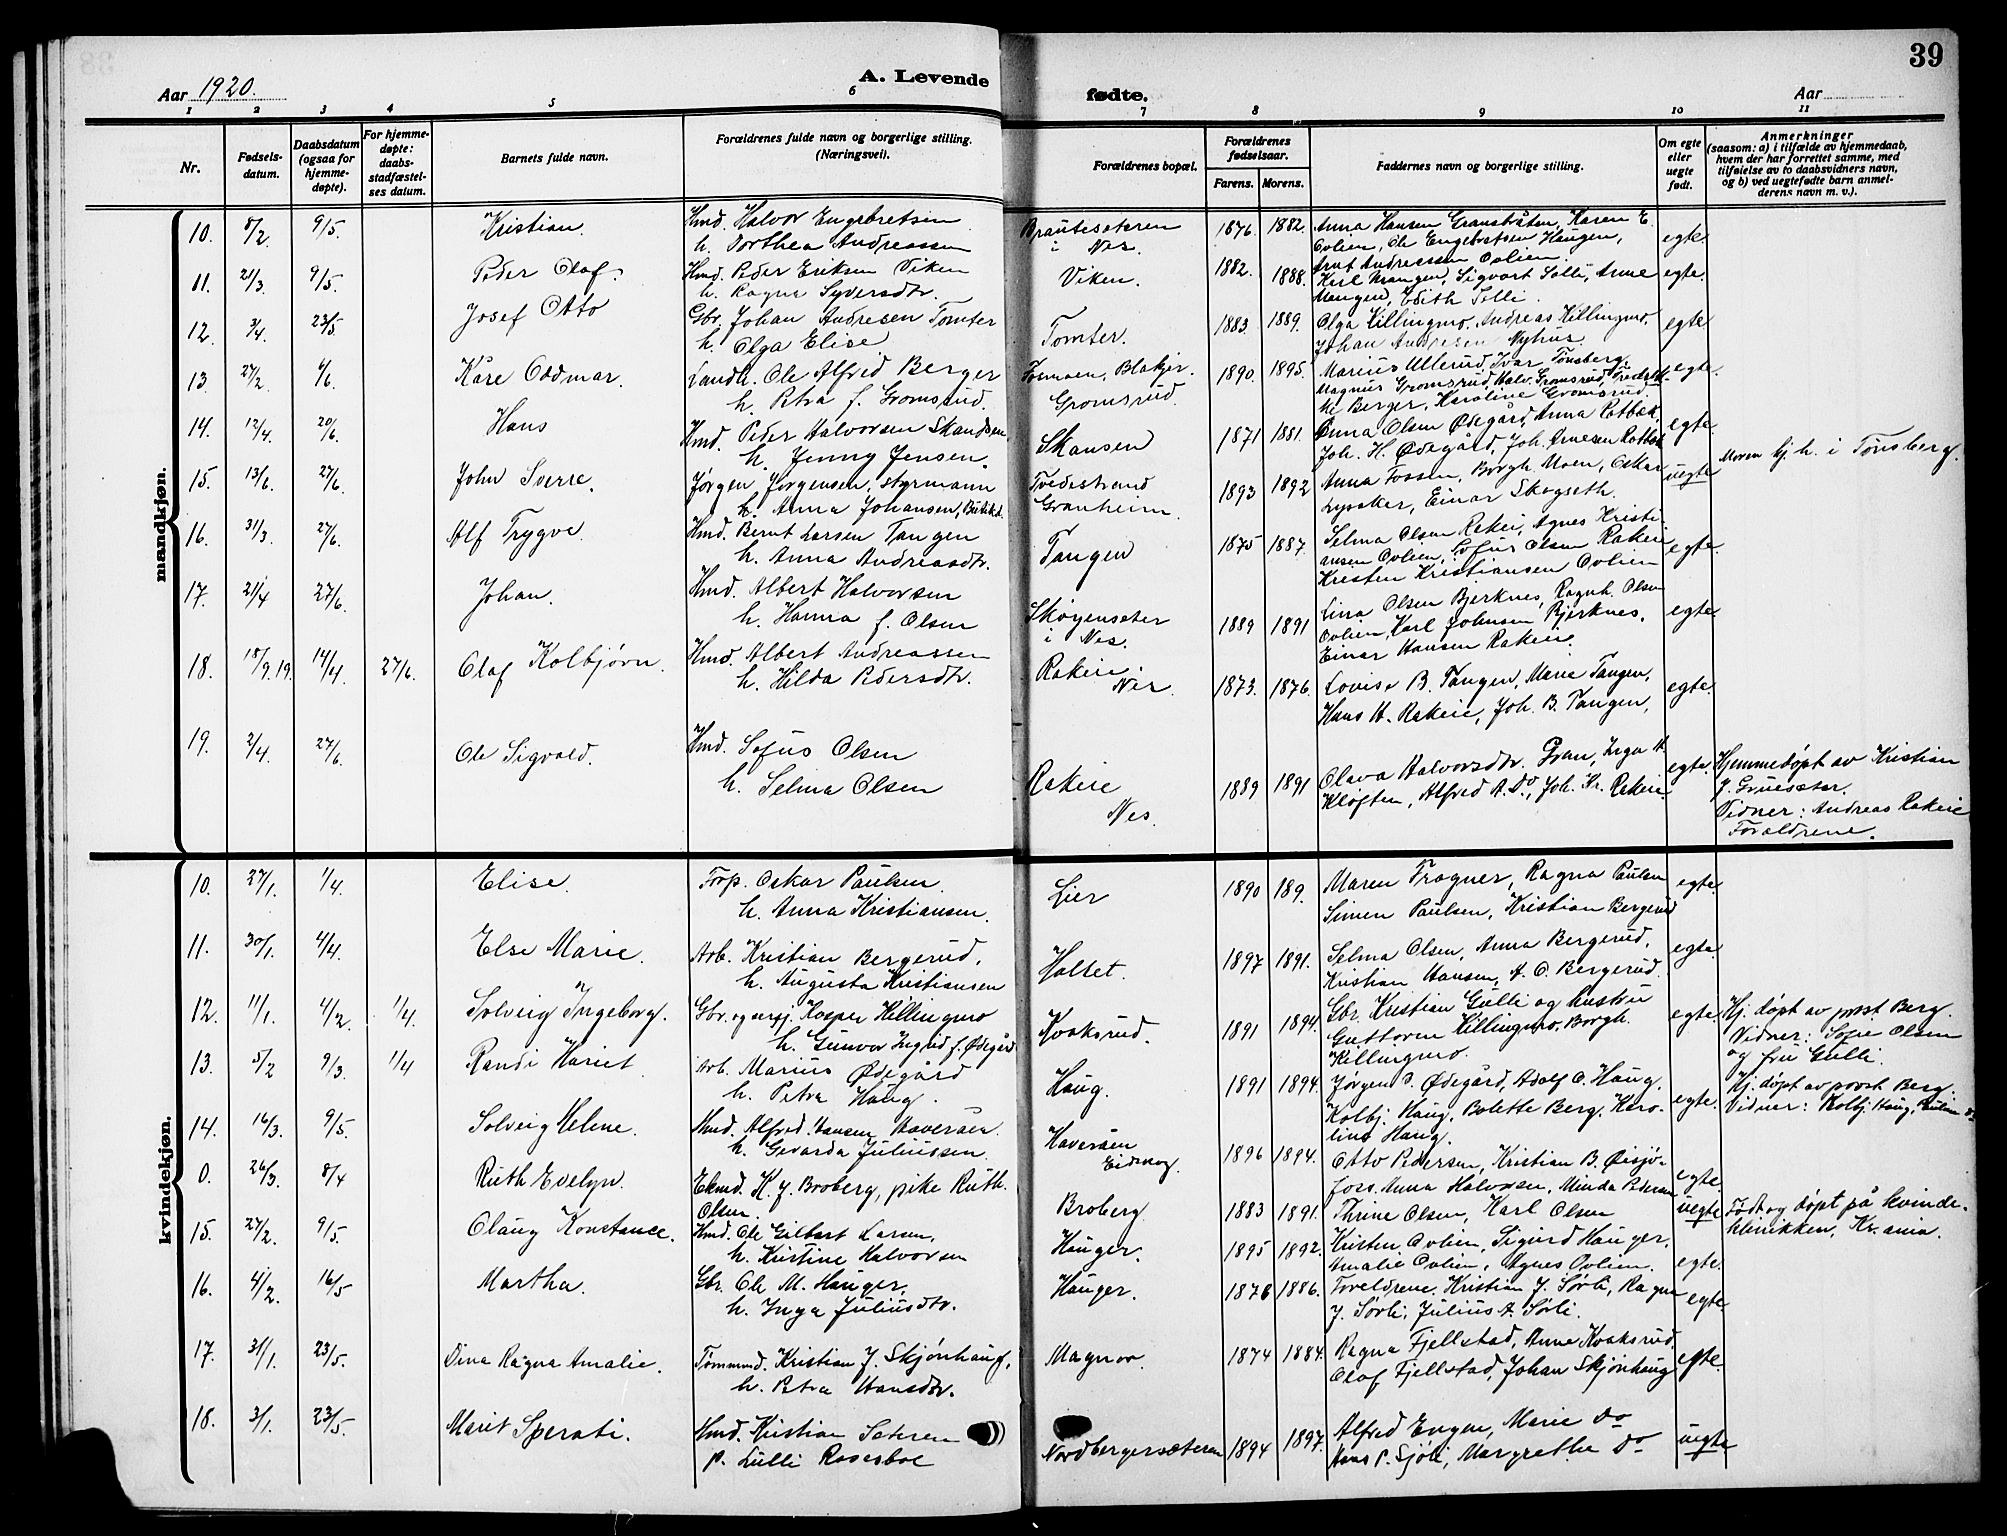 39
Aar 1920.
A. Levende
fødte.
Aar
1 2 3 4 5 6 7 8 9 10 11
Nr.
Fødsels-
datum.
Daabsdatum
(ogsaa for
hjemme-
døpte).
For hjemme-
døpte:
daabs-
stadfæstel-
ses datum.
Barnets fulde navn.
Forældrenes fulde navn og borgerlige stilling.
(Næringsvei).
Forældrenes bopæl.
Forældrenes
fødselsaar.
Farens. Morens.
Faddernes navn og borgerlige stilling.
Om egte
eller
uegte
født.
Anmerkninger
(saasom: a) i tilfælde av hjemmedaab,
hvem der har forrettet samme, med
tilføielse av to daabsvidners navn,
og b) ved uegtefødte barn anmel-
derens navn m. v.).
mandkjøn.
10. 8/2. 9/5. Kristian. Hmd. Halvor Engebretsen Brautesæteren 1876. 1882. Anna Hansen Granstråten, Karen E.
h. Dorthea Andreassen i Nes. Ovlien, Ole Engebretsen Haugen, egte.
Arnt Andreassen Ovlien.
11. 21/3. 9/5. Peder Olaf. Hmd. Peder Eriksen Viken Viken. 1882. 1888. Karl Mangen, Sigvart Solli, Anne egte.
h. Ragna Syversdtr. Mangen, Edith Solli.
12. 3/4. 23/5. Josef Otto Gbr. Johan Andresen Tomter Tomter. 1883. 1889. Olga Killingmo, Andreas Killingmo, egte.
h. Olga Elise Johan Andresen Nyhus.
13. 27/2. 6/6. Kåre Oddmar. Landh. Ole Alfred Berger Blakjer. 1890. 1895. Marius Ullerud, Ivar Tønsberg, egte.
h. Petra f. Gromsrud. Gromsrud. Magnus Gromsrud, Halv. Gromsrud,
Berger, Karoline Gromsrud.
14. 12/4. 20/6. Hans Hmd. Peder Halvorsen Skandsen, Skansen 1871 1881. Anna Olsen Ødegård, Anna Rotbæk, egte.
h. Jenny Jensen. Joh. H. Ødegård, Joh. Arnesen Rotbæk
15. 13/6. 27/6. John Sverre. Jørgen Jørgensen, styrmann Tvedestrand 1893 1892 Anna Fossen, Borgh. Moen, Oskar uegte Moren hj. h. i Tønsberg.
h. Anna Johansen, Granheim. Lysaker, Einar Skogseth.
16. 31/3. 27/6. Alf Trygve. Hmd. Bernt Larsen Tangen Tangen 1875 1887. Selma Olsen Rakei, Agnes Kristi-
h. Anna Andreasdtr. ansen Ovlien, Sofus Olsen Rakeie egte.
Kresten Kristiansen Ovlien
17. 21/4 27/6. Johan. Hmd. Albert Halvorsen Skogensæter 1889 1891 Lina Olsen Bjerknes, Ragnh. Olsen
h. Hanna f. Olsen i Nes. Ovlien, Karl Johnsen Bjerknes, egte.
Einar Hansen Rakeie.
18. 18/9.19. 14/4. 27/6. Olaf Kolbjørn. Hmd. Albert Andreassen Rakeie 1873. 1876. Lovise B. Tangen, Marie Tangen, egte.
h. Hilda Pedersdtr. Nes. Hans H. Rakeie, Joh. B. Tangen,
19. 2/4. 27/6. Ole Sigvald. Hmd. Sofus Olsen Rakeie 1889 1891 Olava Halvorsdtr. Gran, Inga H. egte. Hjemmedøpt av Kristian
h. Selma Olsen Nes. Kløften, Alfred A. Do, Joh. Kr. Rakeie. J. Gruesæter.
Vidner: Andreas Rakeie
Forældrene.
kvindekjøn.
10. 27/1. 1/4. Elise. Forp. Oskar Paulsen. Lier 1890 189. Maren Tragner, Ragna Paulsen egte.
h. Anna Kristiansen. Simen Paulsen, Kristian Bergerud
11. 30/1. 4/4. Else Marie. Arb. Kristian Bergerud, Holtet. 1897 1891. Selma Olsen, Anna Bergerud, egte.
h. Augusta Kristiansen Kristian Hansen, A. O. Bergerud.
12. 11/1. 4/2. 1/4. Solveig Ingeborg. Gbr. Kasper Killingmo Kvaksrud. 1891 1894. Gbr. Kristian Gulli og hustru egte. Hj. døpt av prost Berg.
h. Gunvor Ingrid f. Ødegård Guttorm Killingmo, Borgh. Vidner: Sofie Olsen
Killingmo. og fru Gulli.
13. 5/2 9/3. 1/4 Randi Hariet Arb. Marius Ødegård Haug. 1891 1894. Jørgen Ødegård, Adolf O. Haug, egte. Hj. døpt av prost Berg.
h. Petra Haug. Kolbj. Haug, Bolette Berg, Karo- Vidner: Kolbj. Haug, Pauline do.
line Haug.
14. 16/3. 9/5. Solveig Helene. Hmd. Alfred Hansen Haveråen Haveråen 1896 1894. Otto Pedersen, Kristian B. Øisjø-
h. Gevarda Juliussen. Eidskog. foss. Anna Halvorsen, Minda Pedersen egte.
0. 26/3. 8/4 Ruth Evelyn. Ekmd. K. J. Broberg, pike Ruth Broberg 1883 1891. Thrine Olsen, Karl Olsen uegte Født og døpt på kvinde-
Olsen. klinikken, Kr.ania.
15. 27/2. 9/5. Olaug Konstance. Hmd. Ole Gilbert Larsen, Hauger. 1895 1892. Kristen Ovlien, Sigurd Hauger,
h. Kristine Halvorsen Amalie Ovlien, Agnes Ovlien. egte.
16. 4/2. 16/5 Martha. Gbr. Ole M. Hauger, Hauger. 1876 1886. Foreldrene, Kristian J. Sørli, Ragna egte
h. Inga Juliusdtr. J. Sørli, Julius A. Sørli.
17. 31/1. 23/5. Dina Ragna Amalie. Tømmmd. Kristian J. Skjønhaug, Magnor. 1874 1884. Ragna Fjellstad, Anne Kvaksrud, egte.
h. Petra Hansdtr. Olaf Fjellstad, Johan Skjønhaug
18. 3/1. 23/5. Marit Sperati. Hmd. Kristian Sæteren Nordbergersæteren 1894 1897. Alfred Engen, Marie Do uegte
p. Lulli Rosesboe Hans P. Sjøli, Margrethe Do